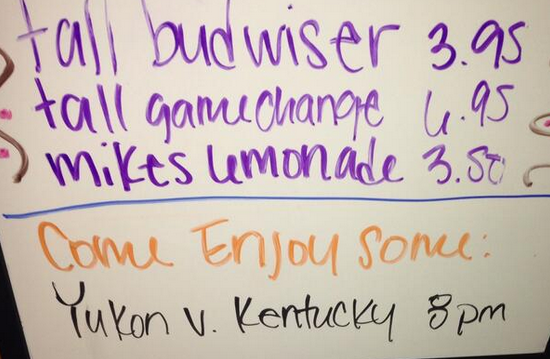 tall budwiser 3.95
tall gamechange 4.95
mikes lemonade 3.50
Come Enjoy Some:
Yukon v. Kentucky 8pm